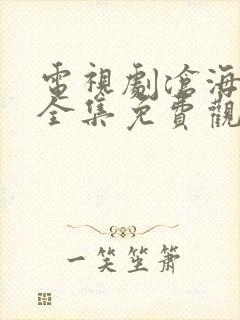 電視劇滄海
全集免費觀
一笑坐蕭